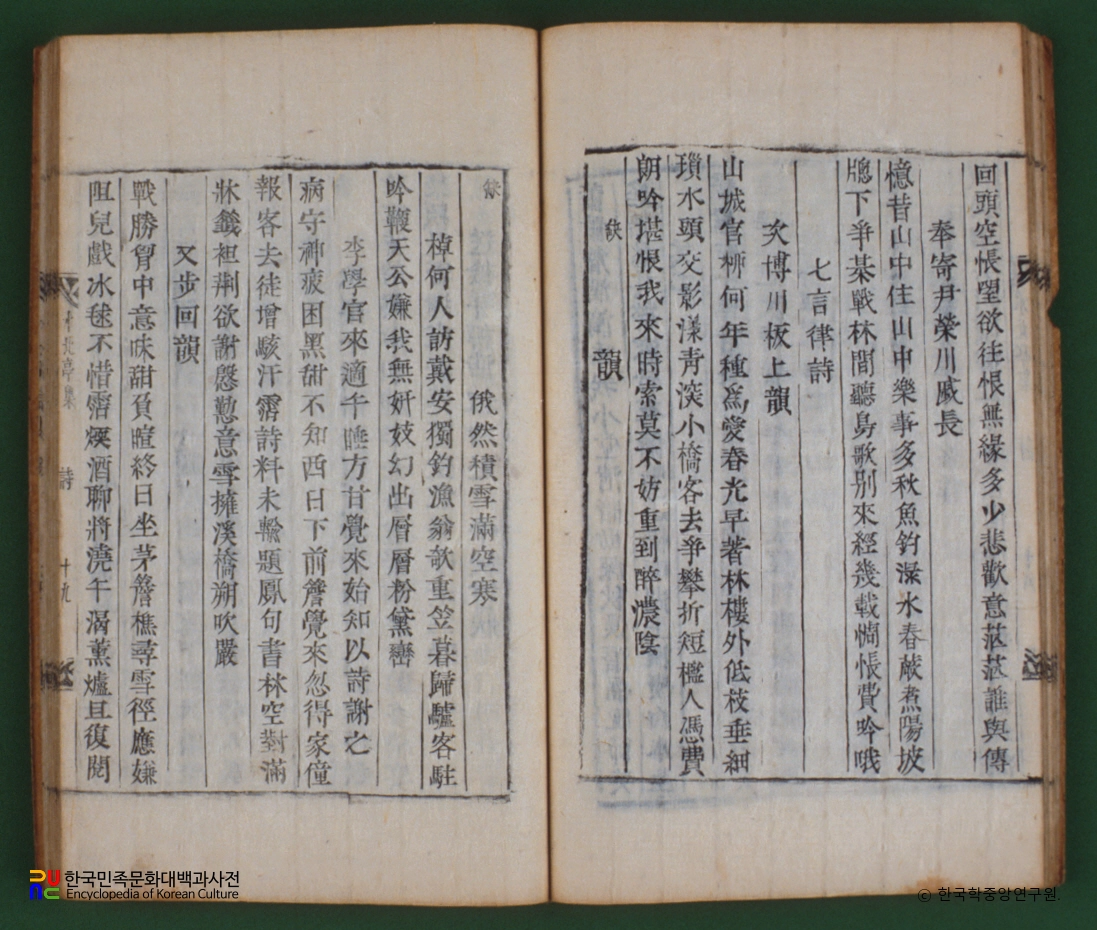 回頭空悵望欲往恨無緣多少悲歡意茫茫誰與傳
奉寄尹榮川戚長
憶昔山中住山中樂事多秋魚釣溪水春蕨煮陽坡
牕下爭棊戰林間聽鳥歌別來經幾載惆悵費吟哦
七言律詩
次博川板上韻
山城官柳何年種爲愛春光早著林樓外低枝垂細
瑣水頭交影漾靑深小橋客去爭攀折短檻人憑費
朗吟堪恨我來時索莫不妨重到醉濃陰
缺 韻
缺 俄然積雪滿空寒
棹何人訪戴安獨釣漁翁欹重笠暮歸驢客駐
吟鞭天公嫌我無姸妓幻出層層粉黛巒
李學官來適午睡方甘覺來始知以詩謝之
病守神疲困黑甜不知西日下前簷覺來忽得家僮
報客去徒增駭汗霑詩料未輸題鳳句書林空對滿
牀籤裡荆欲謝慇懃意雪擁溪橋朔吹嚴
又步回韻
戰勝胷中意味甜負暄終日坐茅簷樵尋雪徑應嫌
阻兒戲冰毬不惜霑煖酒聊將澆午渴薰爐且復閱
亭集
詩
十九
한국민족문화대백과사전
Encyclopedia of Korean Culture
© 한국학중앙연구원.